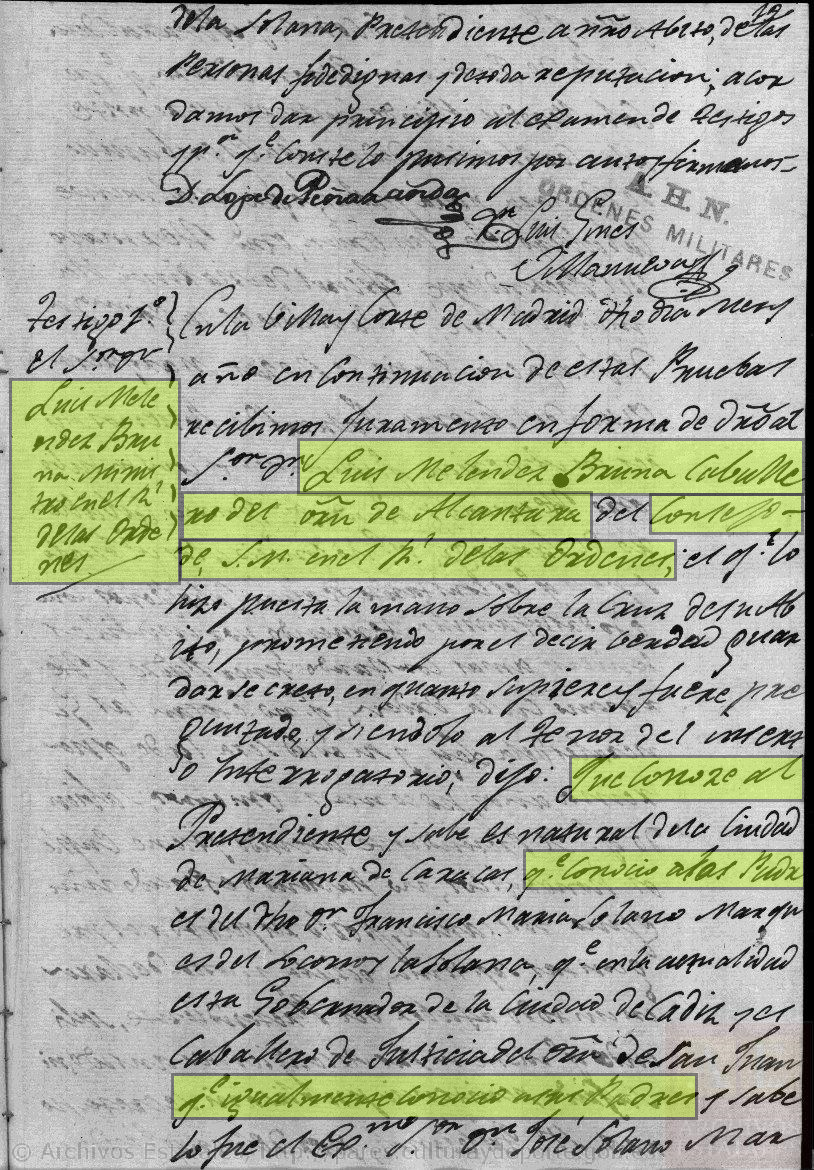 dela Solana, Pretendiente a ñro Abito, de las
Personas fidedignas y de toda reputacion; acor
damos dar principio al examen de testigos
y pª. q.e Conste lo pusimos por auto y firmamos=
D. Lope de Peñaranda
D.n Luis Gines
Villanueva
A. H. N.
ORDENES MILITARES
Testigo 1.º
el S.or D.n
Luis Mele
ndez Bru
na Minis
tro en el R.l
de las Orde
nes
En la Villa y Corte de Madrid dho dia Mes y
año en Continuacion de estas Pruebas
recibimos Juramento en forma de dro al
S.or D.n Luis Melendez Bruna Caballe
ro del orn de Alcantara del Consejo
de S.M. en el R.l de las Ordenes; el q.e lo
hizo puesta la mano sobre la Cruz de su Ab
ito, prometiendo por el decir verdad guar
dar secreto, en quanto supiere y fuere pre
guntado, y siendolo al tenor del insert
o Interrogatorio; dijo: Que Conoze al
Pretendiente y sabe es natural de la Ciudad
de Mariana de Caracas, q.e Conocio a los Padr
es del dho D.n Francisco Maria Solano Marqu
es del Socorro y la Solana q.e en la actualidad
esta Gobernador de la Ciudad de Cadiz y es
Caballero de Justicia del orn de San Juan
q.e igualmente Conocio a sus Padres y sabe
lo fue el Ex.mo S.or D.n José Solano Mar
© Archivos Es